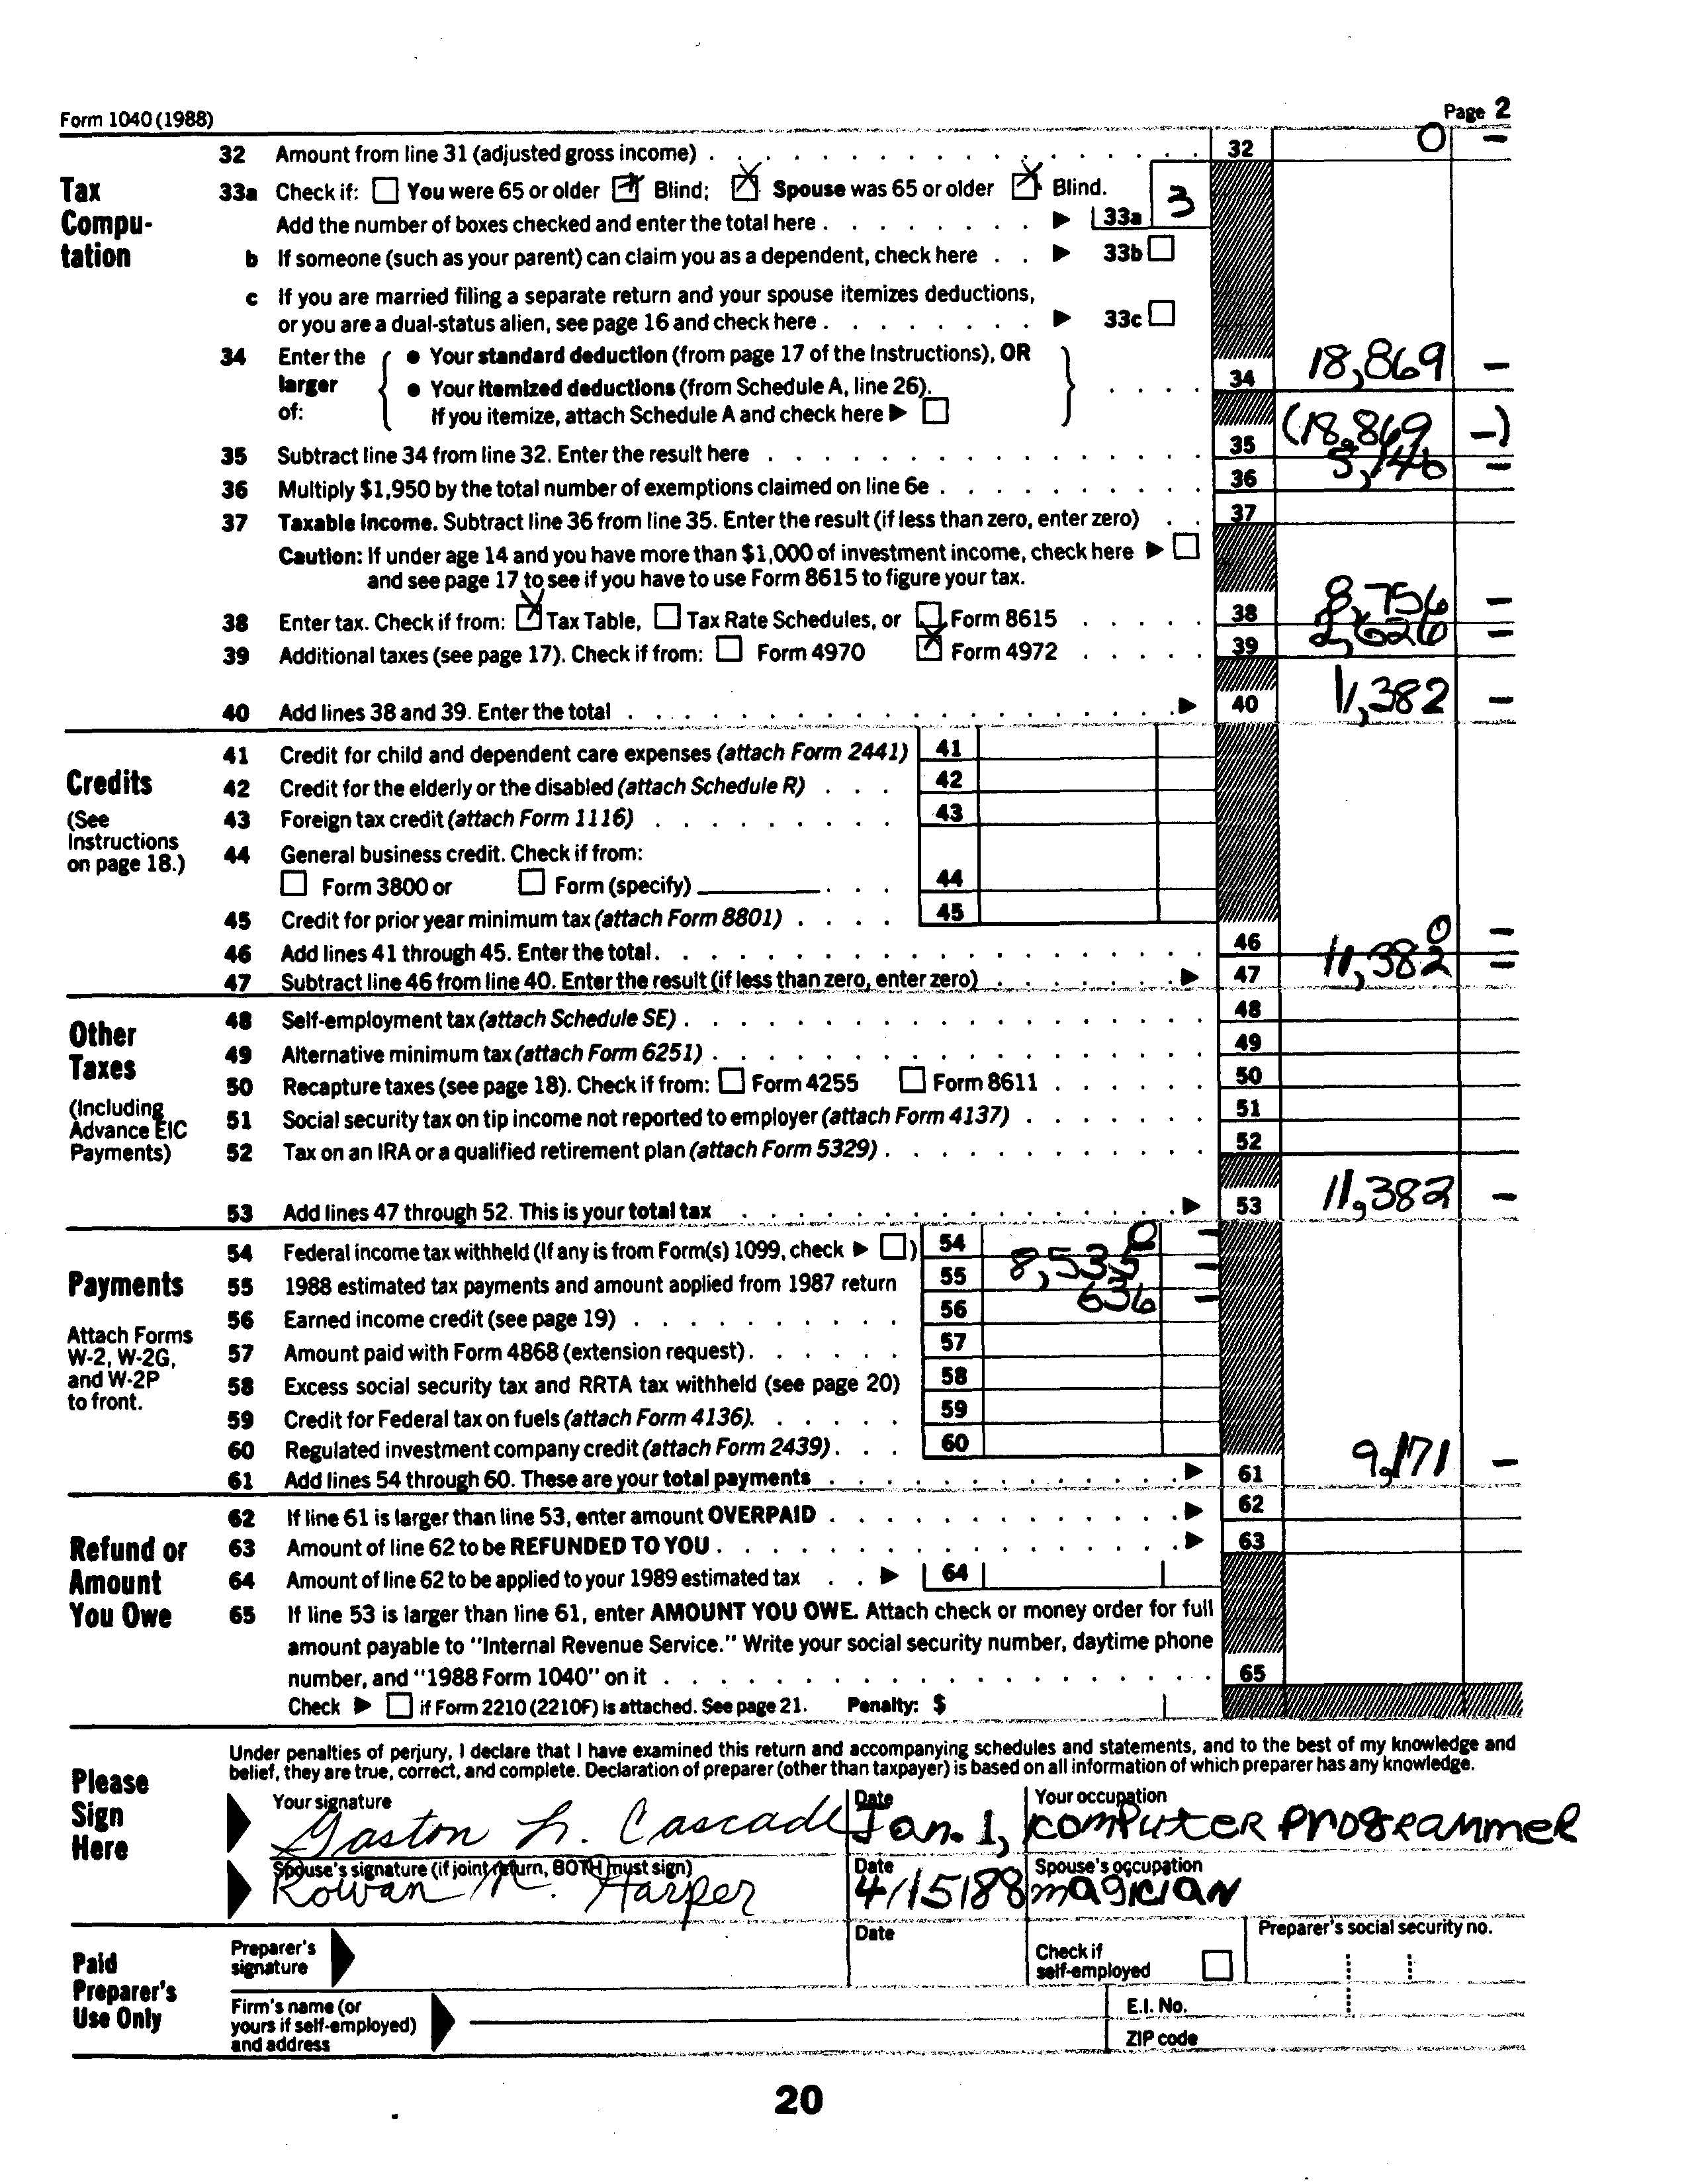 Form 1040 (1988) Page 2
32 Amount from line 31 (adjusted gross income) 32 0 –
Tax Compu- tation
33a Check if: You were 65 or older Blind; Spouse was 65 or older Blind.
Add the number of boxes checked and enter the total here 33a 3
b If someone (such as your parent) can claim you as a dependent, check here 33b
c If you are married filing a separate return and your spouse itemizes deductions,
or you are a dual-status alien, see page 16 and check here 33c
34 Enter the larger of:
• Your standard deduction (from page 17 of the Instructions), OR
• Your itemized deductions (from Schedule A, line 26).
If you itemize, attach Schedule A and check here
34 18,869 –
35 Subtract line 34 from line 32. Enter the result here 35 (18,869 –)
36 Multiply $1,950 by the total number of exemptions claimed on line 6e 36 5,146 –
37 Taxable income. Subtract line 36 from line 35. Enter the result (if less than zero, enter zero) 37
Caution: If under age 14 and you have more than $1,000 of investment income, check here
and see page 17 to see if you have to use Form 8615 to figure your tax.
38 Enter tax. Check if from: Tax Table, Tax Rate Schedules, or Form 8615 38 8,756 –
39 Additional taxes (see page 17). Check if from: Form 4970 Form 4972 39 2,626 –
40 Add lines 38 and 39. Enter the total 40 11,382 –
Credits
(See Instructions on page 18.)
41 Credit for child and dependent care expenses (attach Form 2441) 41
42 Credit for the elderly or the disabled (attach Schedule R) 42
43 Foreign tax credit (attach Form 1116) 43
44 General business credit. Check if from:
Form 3800 or Form (specify) 44
45 Credit for prior year minimum tax (attach Form 8801) 45
46 Add lines 41 through 45. Enter the total 46 0 –
47 Subtract line 46 from line 40. Enter the result (if less than zero, enter zero) 47 11,382 –
Other Taxes
(Including Advance EIC Payments)
48 Self-employment tax (attach Schedule SE) 48
49 Alternative minimum tax (attach Form 6251) 49
50 Recapture taxes (see page 18). Check if from: Form 4255 Form 8611 50
51 Social security tax on tip income not reported to employer (attach Form 4137) 51
52 Tax on an IRA or a qualified retirement plan (attach Form 5329) 52
53 Add lines 47 through 52. This is your total tax 53 11,382 –
Payments
Attach Forms W-2, W-2G, and W-2P to front.
54 Federal income tax withheld (If any is from Form(s) 1099, check ) 54 0 –
55 1988 estimated tax payments and amount applied from 1987 return 55 8,535 –
56 Earned income credit (see page 19) 56 636 –
57 Amount paid with Form 4868 (extension request) 57
58 Excess social security tax and RRTA tax withheld (see page 20) 58
59 Credit for Federal tax on fuels (attach Form 4136) 59
60 Regulated investment company credit (attach Form 2439) 60
61 Add lines 54 through 60. These are your total payments 61 9,171 –
Refund or Amount You Owe
62 If line 61 is larger than line 53, enter amount OVERPAID 62
63 Amount of line 62 to be REFUNDED TO YOU 63
64 Amount of line 62 to be applied to your 1989 estimated tax 64
65 If line 53 is larger than line 61, enter AMOUNT YOU OWE. Attach check or money order for full
amount payable to "Internal Revenue Service." Write your social security number, daytime phone
number, and "1988 Form 1040" on it 65
Check if Form 2210 (2210F) is attached. See page 21. Penalty: $
Please Sign Here
Under penalties of perjury, I declare that I have examined this return and accompanying schedules and statements, and to the best of my knowledge and
belief, they are true, correct, and complete. Declaration of preparer (other than taxpayer) is based on all information of which preparer has any knowledge.
Your signature Date Your occupation
Gaston L. Cascade Jan. 1, computer programmer
Spouse's signature (if joint return, BOTH must sign) Date Spouse's occupation
Rowan K. Harper 4/15188 magician
Paid Preparer's Use Only
Preparer's signature Date Check if self-employed Preparer's social security no.
Firm's name (or yours if self-employed) and address E.I. No.
ZIP code
20